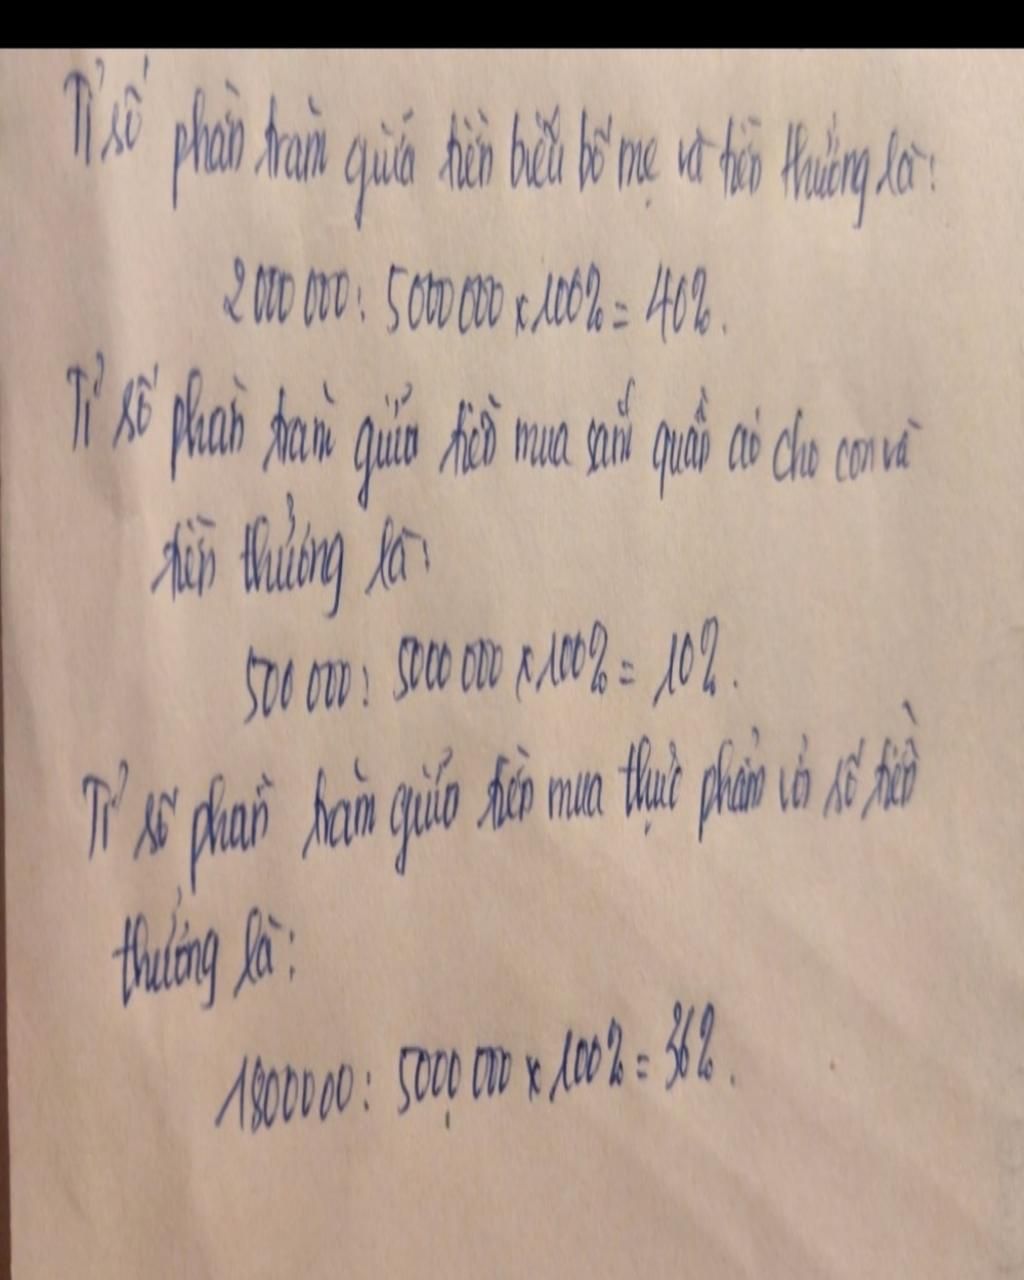 Tỉ số phần trăm giữa tiền biếu bố mẹ và tiền thưởng là:
2000 000 : 5000 000 x 100% = 40%.
Tỉ số phần trăm giữa tiền mua sắm quần áo cho con và
tiền thưởng là:
500 000 : 5000 000 x 100% = 10%.
Tỉ số phần trăm giữa tiền mua thực phẩm với số tiền
thưởng là:
1800000 : 5000 000 x 100% = 36%.